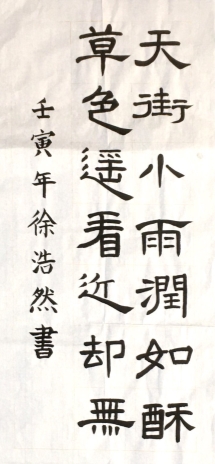 天街小雨潤如酥
草色遥看近却無
壬寅年徐浩然書